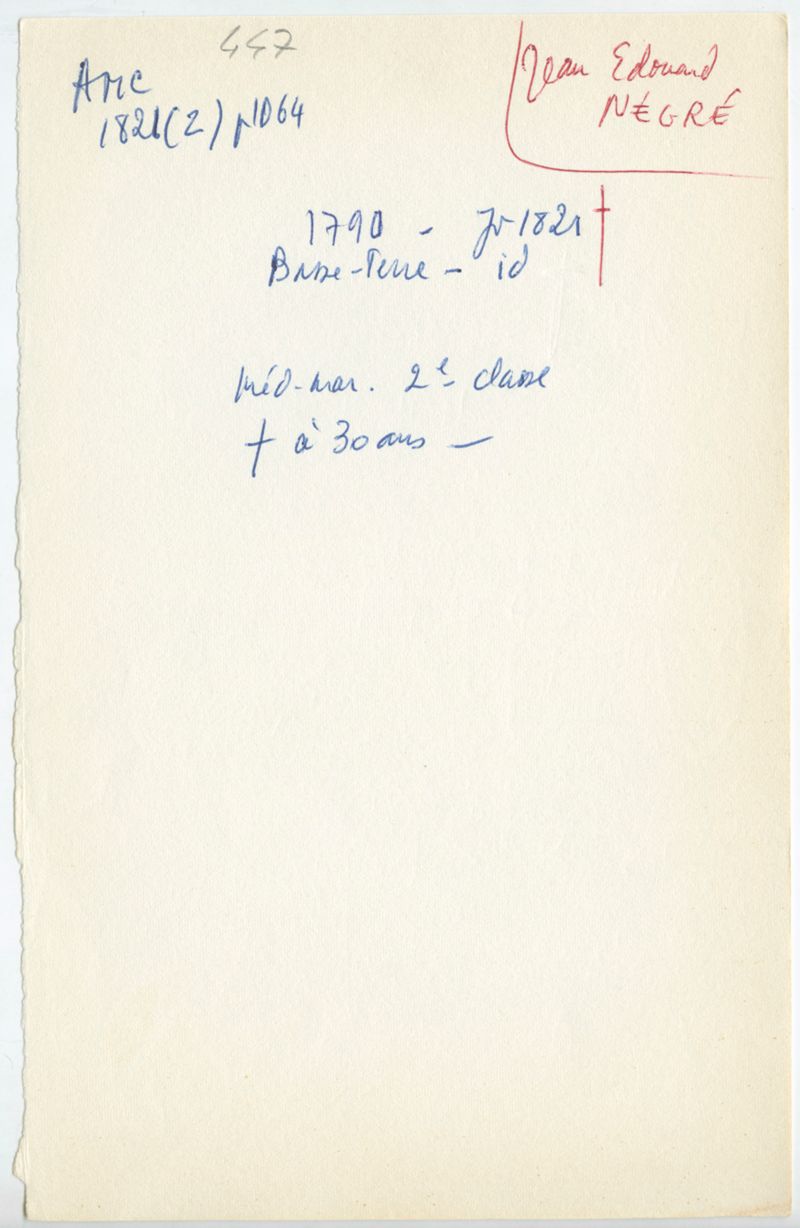 447
AMC
1821(2) p1064
Jean Edouard
NÉGRÉ
1790 - Jr 1821 †
Basse-Terre - id
Méd-mar. 2e classe
† à 30 ans —